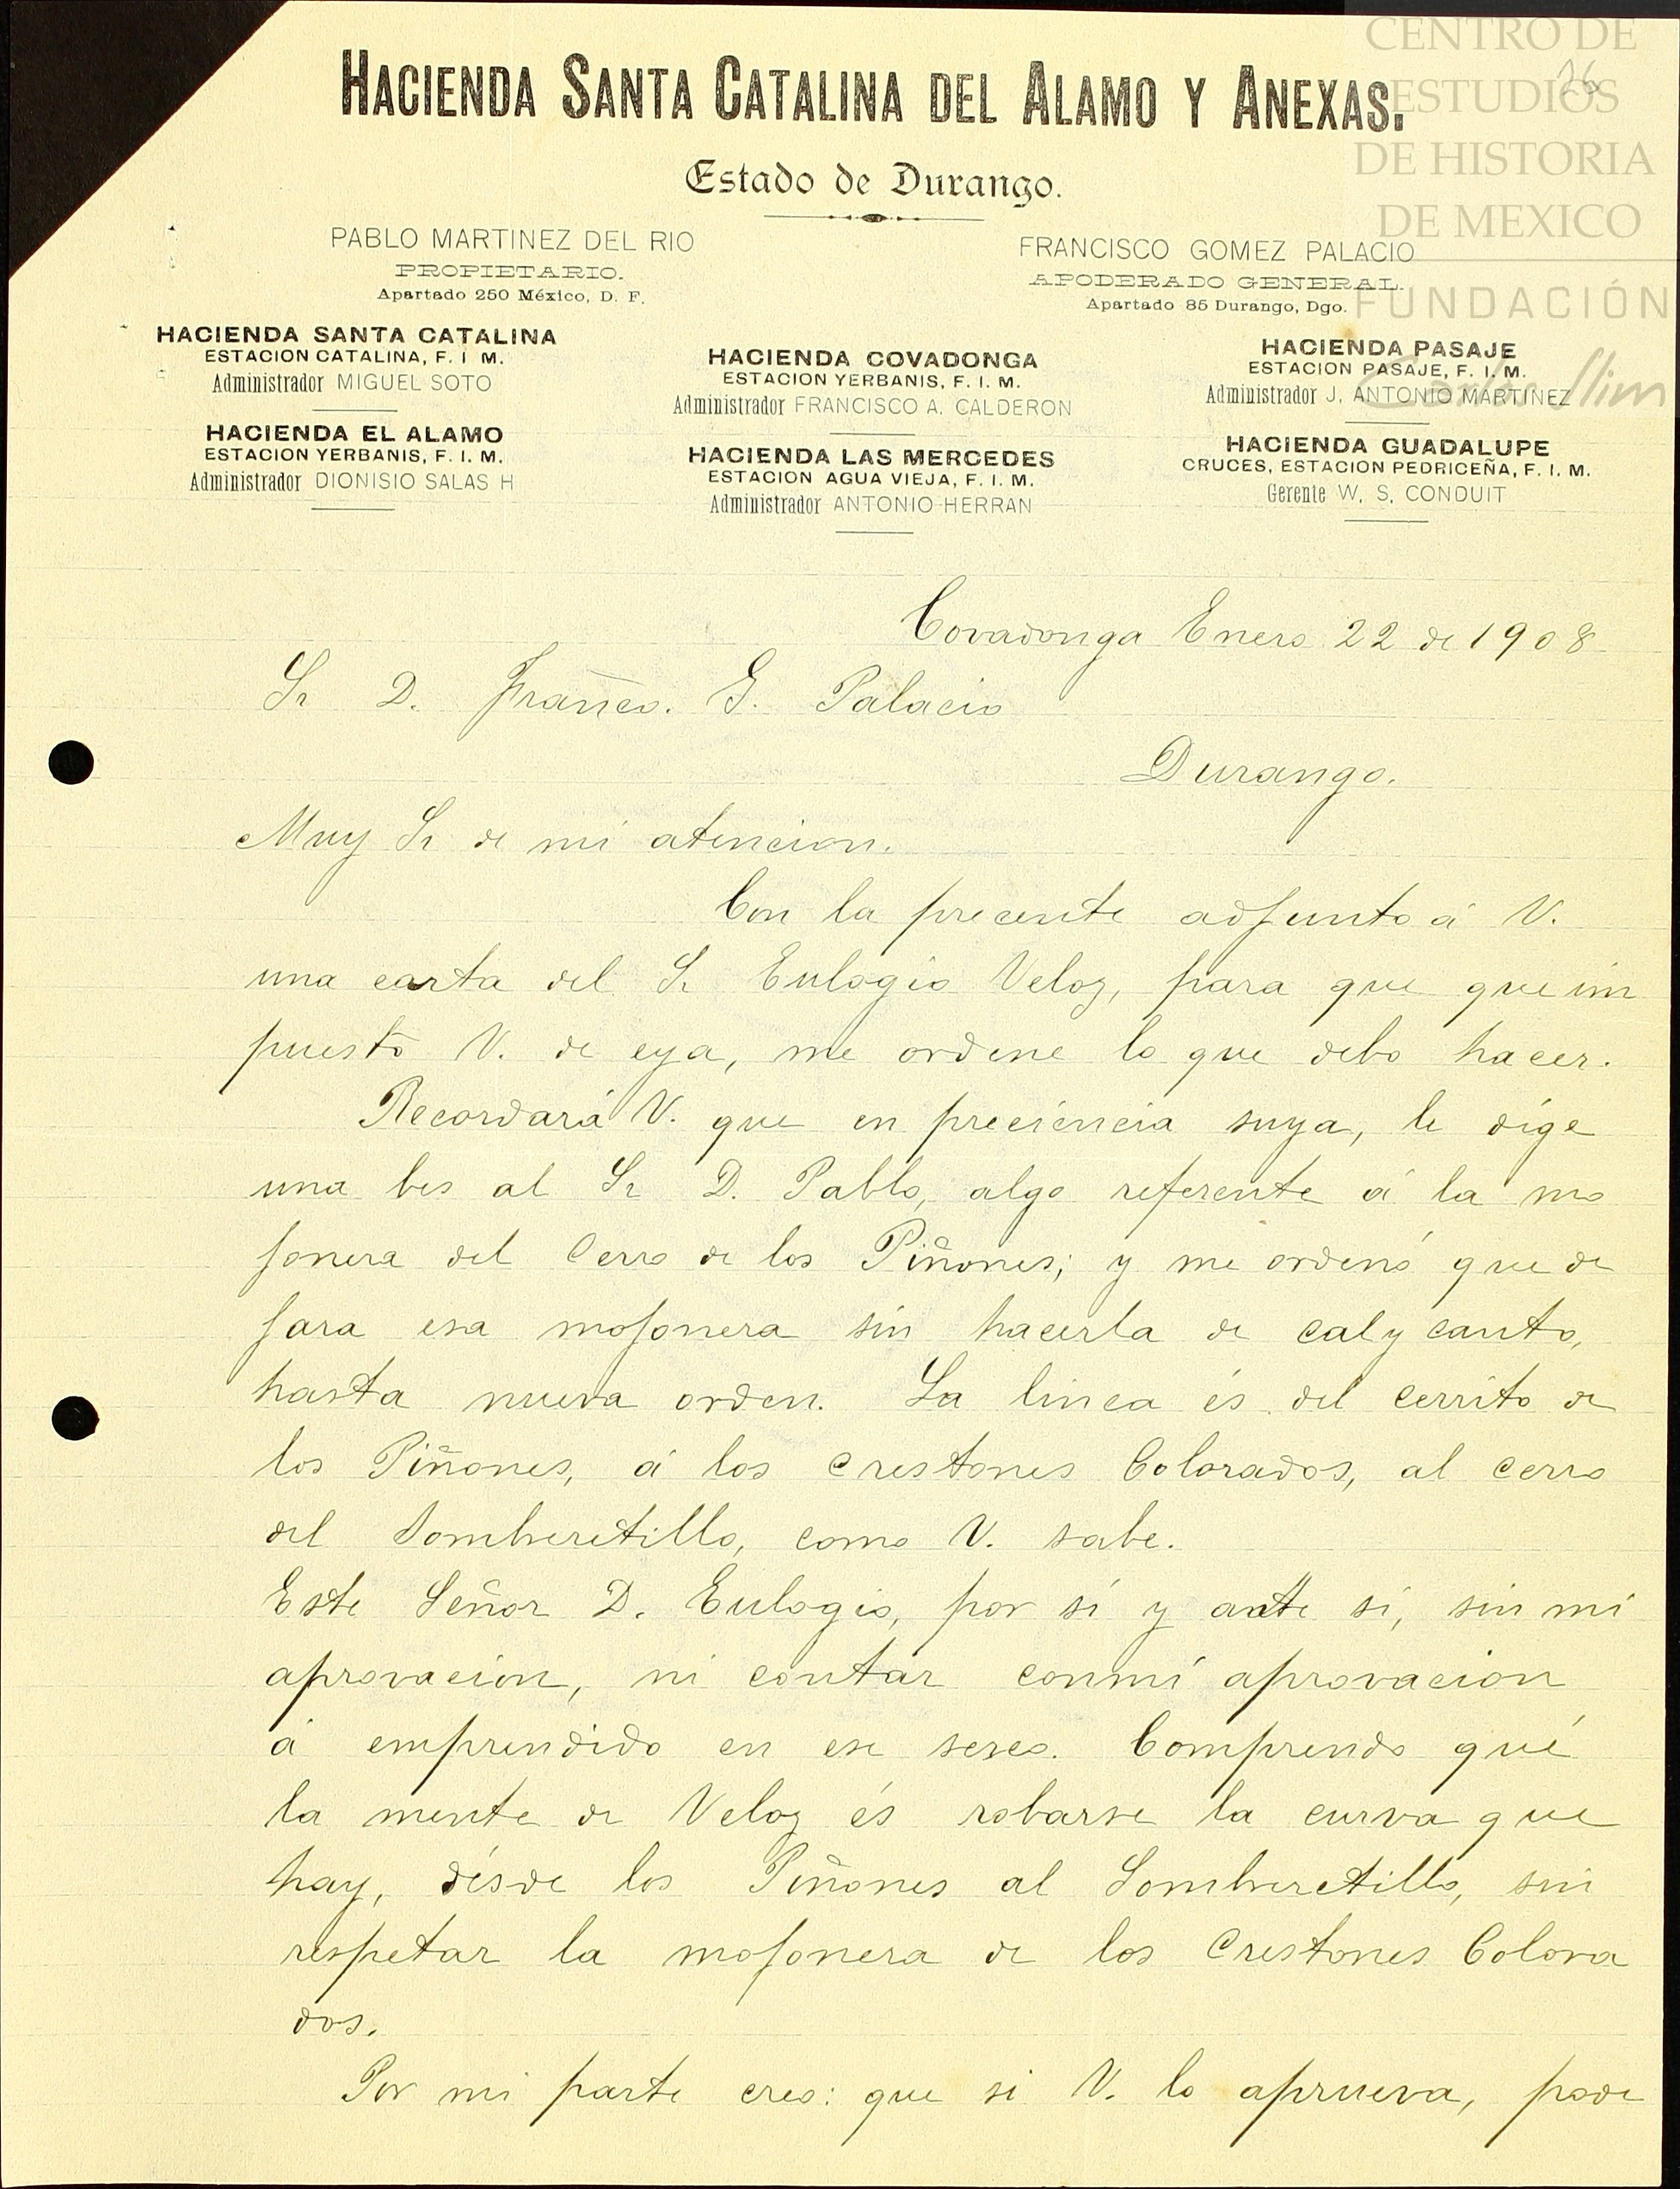 CENTRO DE
ESTUDIOS
DE HISTORIA
DE MEXICO
FUNDACIÓN
Carlos Slim
HACIENDA SANTA CATALINA DEL ALAMO Y ANEXAS.
Estado de Durango.
PABLO MARTINEZ DEL RIO
PROPIETARIO.
Apartado 250 México, D. F.
FRANCISCO GOMEZ PALACIO
APODERADO GENERAL.
Apartado 85 Durango, Dgo.
HACIENDA SANTA CATALINA
ESTACION CATALINA, F. I M.
Administrador MIGUEL SOTO
HACIENDA EL ALAMO
ESTACION YERBANIS, F. I. M.
Administrador DIONISIO SALAS H
HACIENDA COVADONGA
ESTACION YERBANIS, F. I. M.
Administrador FRANCISCO A. CALDERON
HACIENDA LAS MERCEDES
ESTACION AGUA VIEJA, F. I. M.
Administrador ANTONIO HERRAN
HACIENDA PASAJE
ESTACION PASAJE, F. I. M.
Administrador J. ANTONIO MARTINEZ
HACIENDA GUADALUPE
CRUCES, ESTACION PEDRICEÑA, F. I. M.
Gerente W. S. CONDUIT
Covadonga Enero 22 de 1908
Sr D. Franco. G. Palacio
Durango.
Muy Sr de mi atencion.
Con la precente adjunto á V.
una carta del Sr Eulogio Veloz, para que que im
puesto V. de eya, me ordene lo que debo hacer.
Recordará V. que en preciencia suya, le dige
una bes al Sr D. Pablo, algo referente á la mo
jonera del Cerro de los Piñones; y me ordenó que de
jara esa mojonera sin hacerla de cal y canto,
hasta nueva orden. La linea és del cerrito de
los Piñones, á los Crestones Colorados, al cerro
del Sombreretillo, como V. sabe.
Este Señor D. Eulogio, por sí y ante sí, sin mi
aprovacion, ni contar conmi aprovacion
á emprendido en ese seseo. Comprendo qué
la mente de Veloz és robarse la curva que
hay, désde los Piñones al Sombreretillo, sin
respetar la mojonera de los Crestones Colora
dos.
Por mi parte creo: que si V. lo aprueva, pode